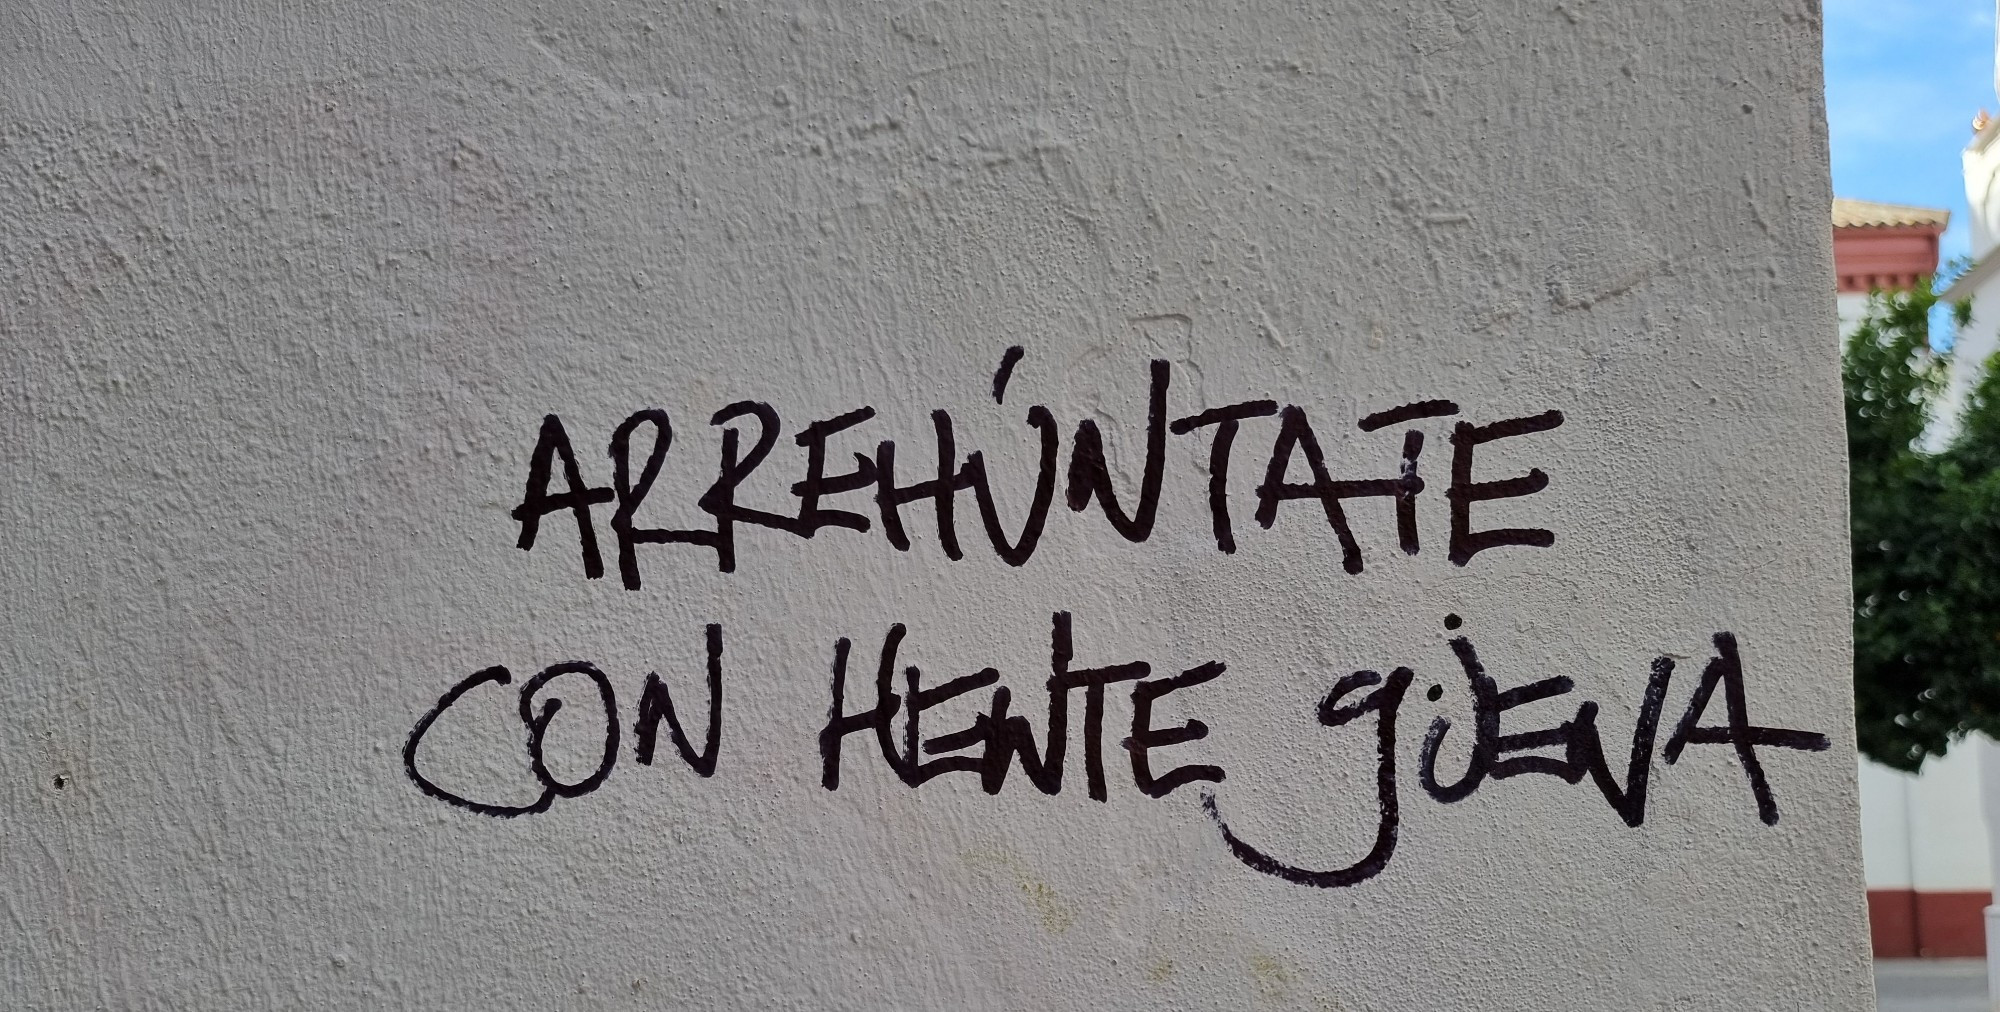 ARREHÚNTATE
CON HENTE gÜENA